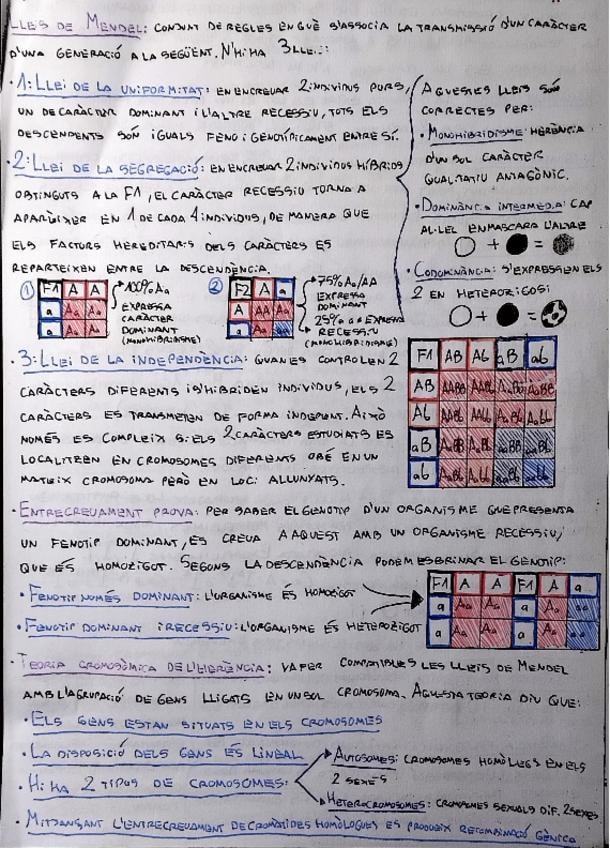 LLEIS DE MENDEL: CONJUNT DE REGLES EN QUÈ S'ASSOCIA LA TRANSMISSIÓ D'UN CARÀCTER
D'UNA GENERACIÓ A LA SEGÜENT. N'HI HA 3 LLEIS:
· 1ª LLEI DE LA UNIFORMITAT: EN ENCREUAR 2 INDIVIDUS PURS,
UN DE CARÀCTER DOMINANT I L'ALTRE RECESSIU, TOTS ELS
DESCENDENTS SÓN IGUALS FENO I GENOTÍPICAMENT ENTRE SÍ.
· 2ª LLEI DE LA SEGREGACIÓ: EN ENCREUAR 2 INDIVIDUS HÍBRIDS
OBTINGUTS A LA F1, EL CARÀCTER RECESSIU TORNA A
APARÈIXER EN 1 DE CADA 4 INDIVIDUS, DE MANERA QUE
ELS FACTORS HEREDITARIS DELS CARÀCTERS ES
REPARTEIXEN ENTRE LA DESCENDÈNCIA.
AQUESTES LLEIS SÓN
CORRECTES PER:
· MONOHIBRIDISME: HERÈNCIA
D'UN SOL CARÀCTER
QUALITATIU ANTAGÒNIC.
· DOMINÀNCIA INTERMEDIA: CAP
AL·LEL ENMASCARA L'ALTRE
+ =
· CODOMINÀNCIA: S'EXPRESSEN ELS
2 EN HETEROZIGOSI
+ =
1 F1 A A
a Aa Aa
a Aa Aa
100% Aa
EXPRESSA
CARÀCTER
DOMINANT
(MONOHIBRIDISME)
2 F2 A a
A AA Aa
a Aa aa
75% Aa/AA
EXPRESSA
DOMINANT
25% aa EXPRESSA
RECESSIU
(MONOHIBRIDISME)
· 3ª LLEI DE LA INDEPENDÈNCIA: QUAN ES CONTROLEN 2
CARÀCTERS DIFERENTS I S'HIBRIDEN INDIVIDUS, ELS 2
CARÀCTERS ES TRANSMETEN DE FORMA INDEPENT. AIXÒ
NOMÉS ES COMPLEIX SI ELS 2 CARÀCTERS ESTUDIATS ES
LOCALITZEN EN CROMOSOMES DIFERENTS O BÉ EN UN
MATEIX CROMOSOMA PERÒ EN LOCI ALLUNYATS.
F1 AB Ab aB ab
AB AABB AABb AaBB AaBb
Ab AABb AAbb AaBb Aabb
aB AaBB AaBb aaBB aaBb
ab AaBb Aabb aaBb aabb
· ENTRECREUAMENT PROVA: PER SABER EL GENOTIP D'UN ORGANISME QUE PRESENTA
UN FENOTIP DOMINANT, ES CREUA A AQUEST AMB UN ORGANISME RECESSIU,
QUE ÉS HOMOZIGOT. SEGONS LA DESCENDÈNCIA PODEM ESBRINAR EL GENOTIP:
· FENOTIP NOMÉS DOMINANT: L'ORGANISME ÉS HOMOZIGOT
· FENOTIP DOMINANT I RECESSIU: L'ORGANISME ÉS HETEROZIGOT
F1 A A F1 A a
a Aa Aa a Aa aa
a Aa Aa a Aa aa
· TEORIA CROMOSÒMICA DE L'HERÈNCIA: VA FER COMPATIBLES LES LLEIS DE MENDEL
AMB L'AGRUPACIÓ DE GENS LLIGATS EN UN SOL CROMOSOMA. AQUESTA TEORIA DIU QUE:
· ELS GENS ESTAN SITUATS EN ELS CROMOSOMES
· LA DISPOSICIÓ DELS GENS ÉS LINEAL
· HI HA 2 TIPUS DE CROMOSOMES:
AUTOSOMES: CROMOSOMES HOMÒLEGS EN ELS
2 SEXES
HETEROCROMOSOMES: CROMOSOMES SEXUALS DIF. 2 SEXES
· MITJANÇANT L'ENTRECREUAMENT DE CROMÀTIDES HOMÒLOGUES ES PRODUEIX RECOMBINACIÓ GÈNICA